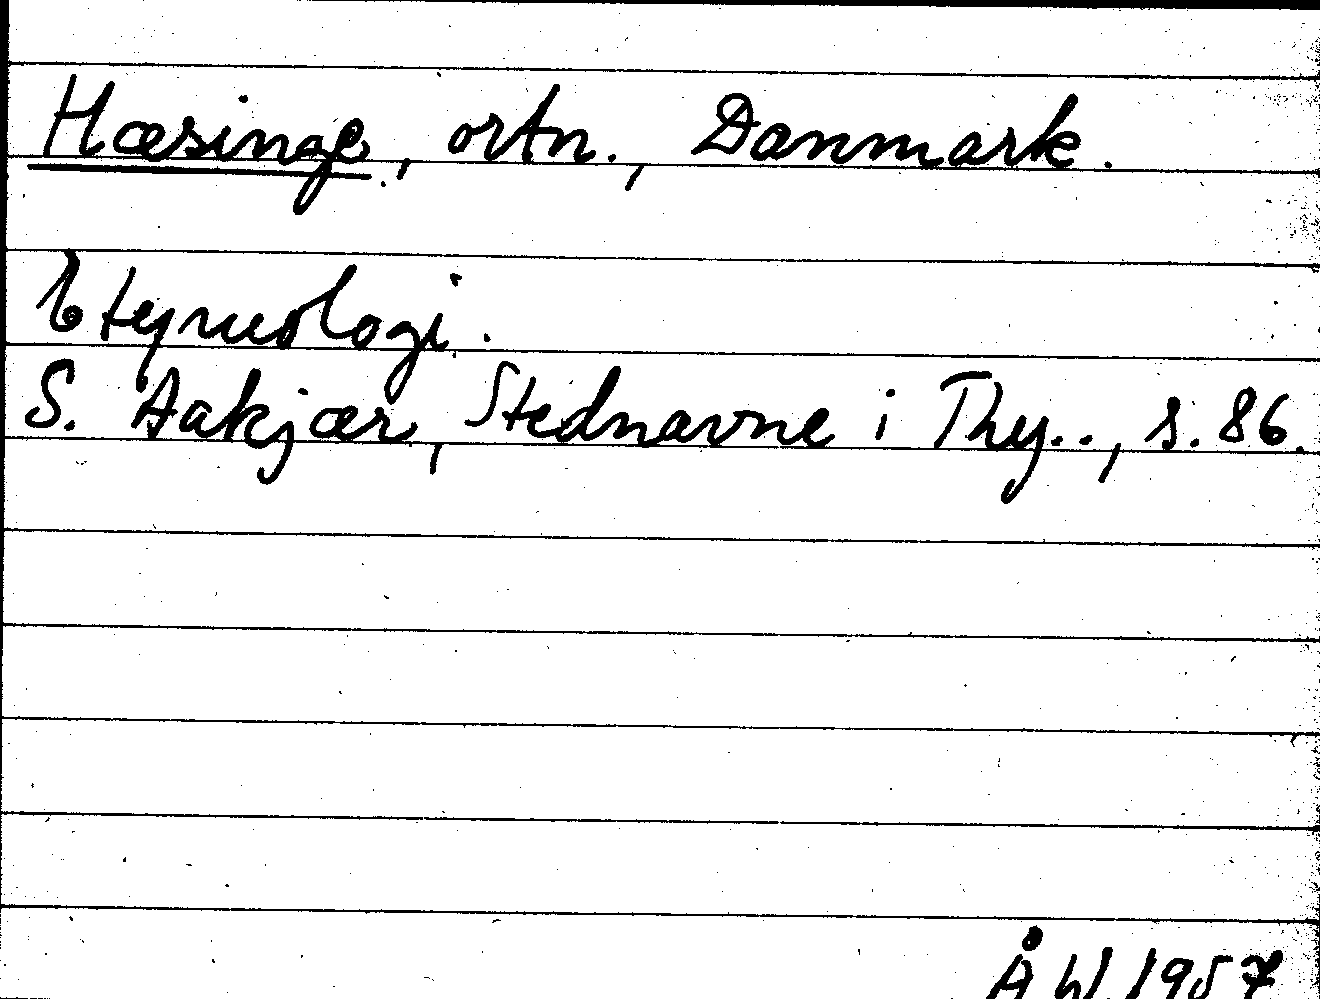 Hæsinge, ortn., Danmark.
Etymologi.
S. Aakjær, Stednavne i Thy.., s. 86.
ÅW 1957